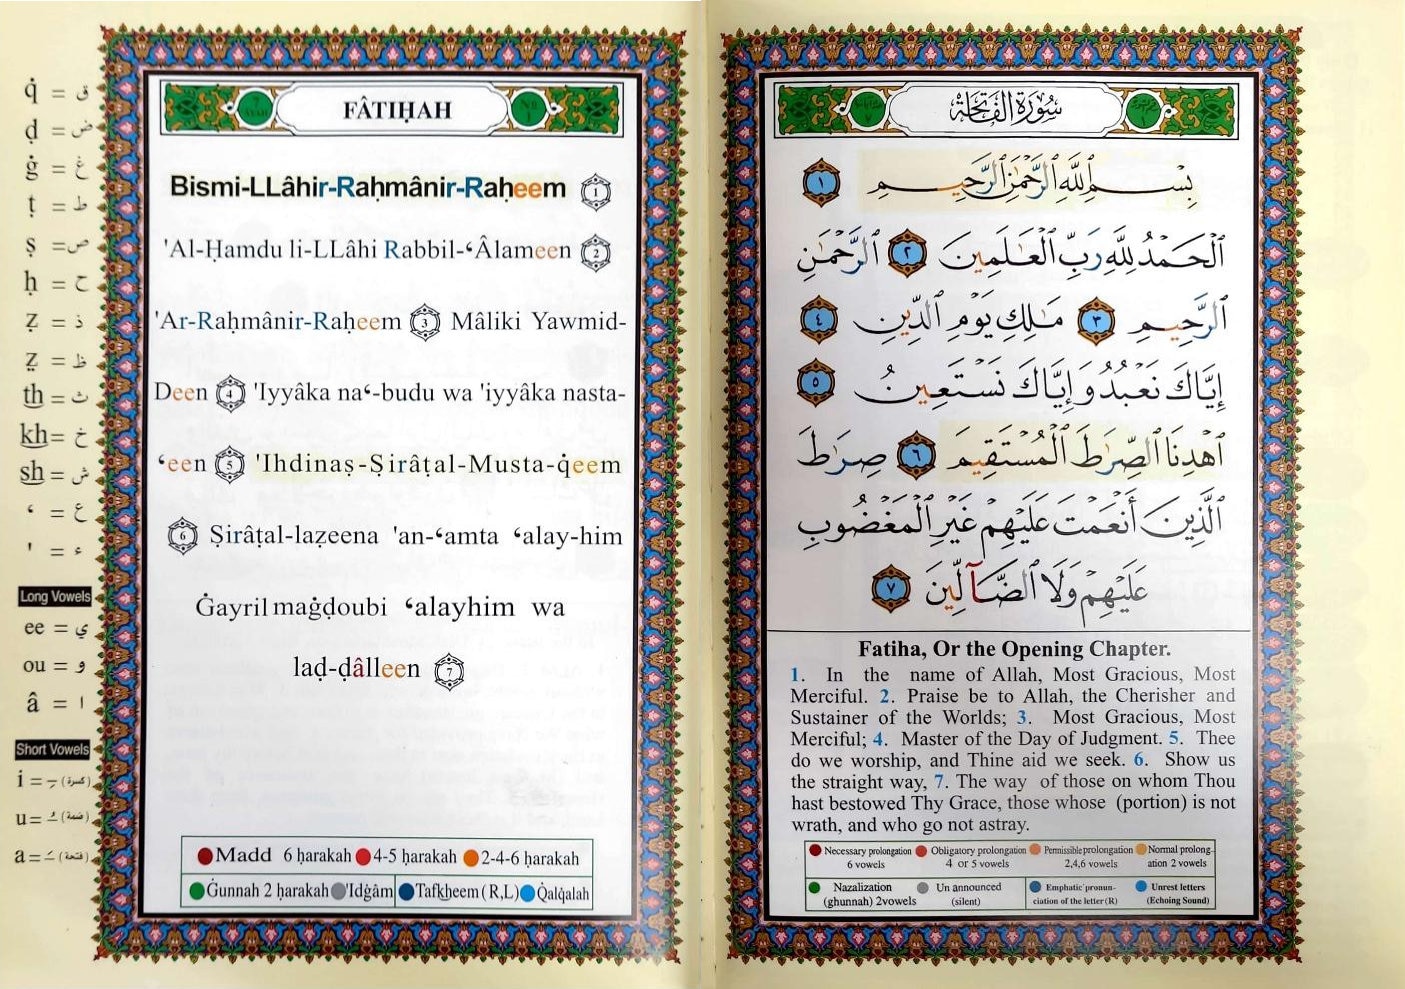 q̇ = ق
ḍ = ض
ġ = غ
ṭ = ط
ṣ = ص
ḥ = ح
Ẓ = ذ
ẓ = ظ
th = ث
kh = خ
sh = ش
ʿ = ع
' = ء
Long Vowels
ee = ي
ou = و
â = ا
Short Vowels
i = (كسرة)
u = (ضمة)
a = (فتحة)
FÂTIḤAH
Bismi-LLâhir-Raḥmânir-Raḥeem 1
'Al-Ḥamdu li-LLâhi Rabbil-ʿÂlameen 2
'Ar-Raḥmânir-Raḥeem 3 Mâliki Yawmid-
Deen 4 'Iyyâka naʿ-budu wa 'iyyâka nasta-
ʿeen 5 'Ihdinaṣ-Ṣirâṭal-Musta-q̇eem
6 Ṣirâṭal-laẓeena 'an-ʿamta ʿalay-him
Ġayril maġḍoubi ʿalayhim wa
laḍ-ḍâlleen 7
Madd 6 ḥarakah 4-5 ḥarakah 2-4-6 ḥarakah
Ġunnah 2 ḥarakah 'Idġâm Tafkheem (R,L) Q̇alq̇alah
سُورَةُ الفَاتِحَة
بِسْمِ ٱللَّهِ ٱلرَّحْمَٰنِ ٱلرَّحِيمِ ١
ٱلْحَمْدُ لِلَّهِ رَبِّ ٱلْعَٰلَمِينَ ٢ ٱلرَّحْمَٰنِ
ٱلرَّحِيمِ ٣ مَٰلِكِ يَوْمِ ٱلدِّينِ ٤
إِيَّاكَ نَعْبُدُ وَإِيَّاكَ نَسْتَعِينُ ٥
ٱهْدِنَا ٱلصِّرَٰطَ ٱلْمُسْتَقِيمَ ٦ صِرَٰطَ
ٱلَّذِينَ أَنْعَمْتَ عَلَيْهِمْ غَيْرِ ٱلْمَغْضُوبِ
عَلَيْهِمْ وَلَا ٱلضَّآلِّينَ ٧
Fatiha, Or the Opening Chapter.
1. In the name of Allah, Most Gracious, Most
Merciful. 2. Praise be to Allah, the Cherisher and
Sustainer of the Worlds; 3. Most Gracious, Most
Merciful; 4. Master of the Day of Judgment. 5. Thee
do we worship, and Thine aid we seek. 6. Show us
the straight way, 7. The way of those on whom Thou
hast bestowed Thy Grace, those whose (portion) is not
wrath, and who go not astray.
Necessary prolongation Obligatory prolongation Permissible prolongation Normal prolong-
6 vowels 4 or 5 vowels 2,4,6 vowels ation 2 vowels
Nazalization Un announced Emphatic pronun- Unrest letters
(ghunnah) 2vowels (silent) ciation of the letter (R) (Echoing Sound)